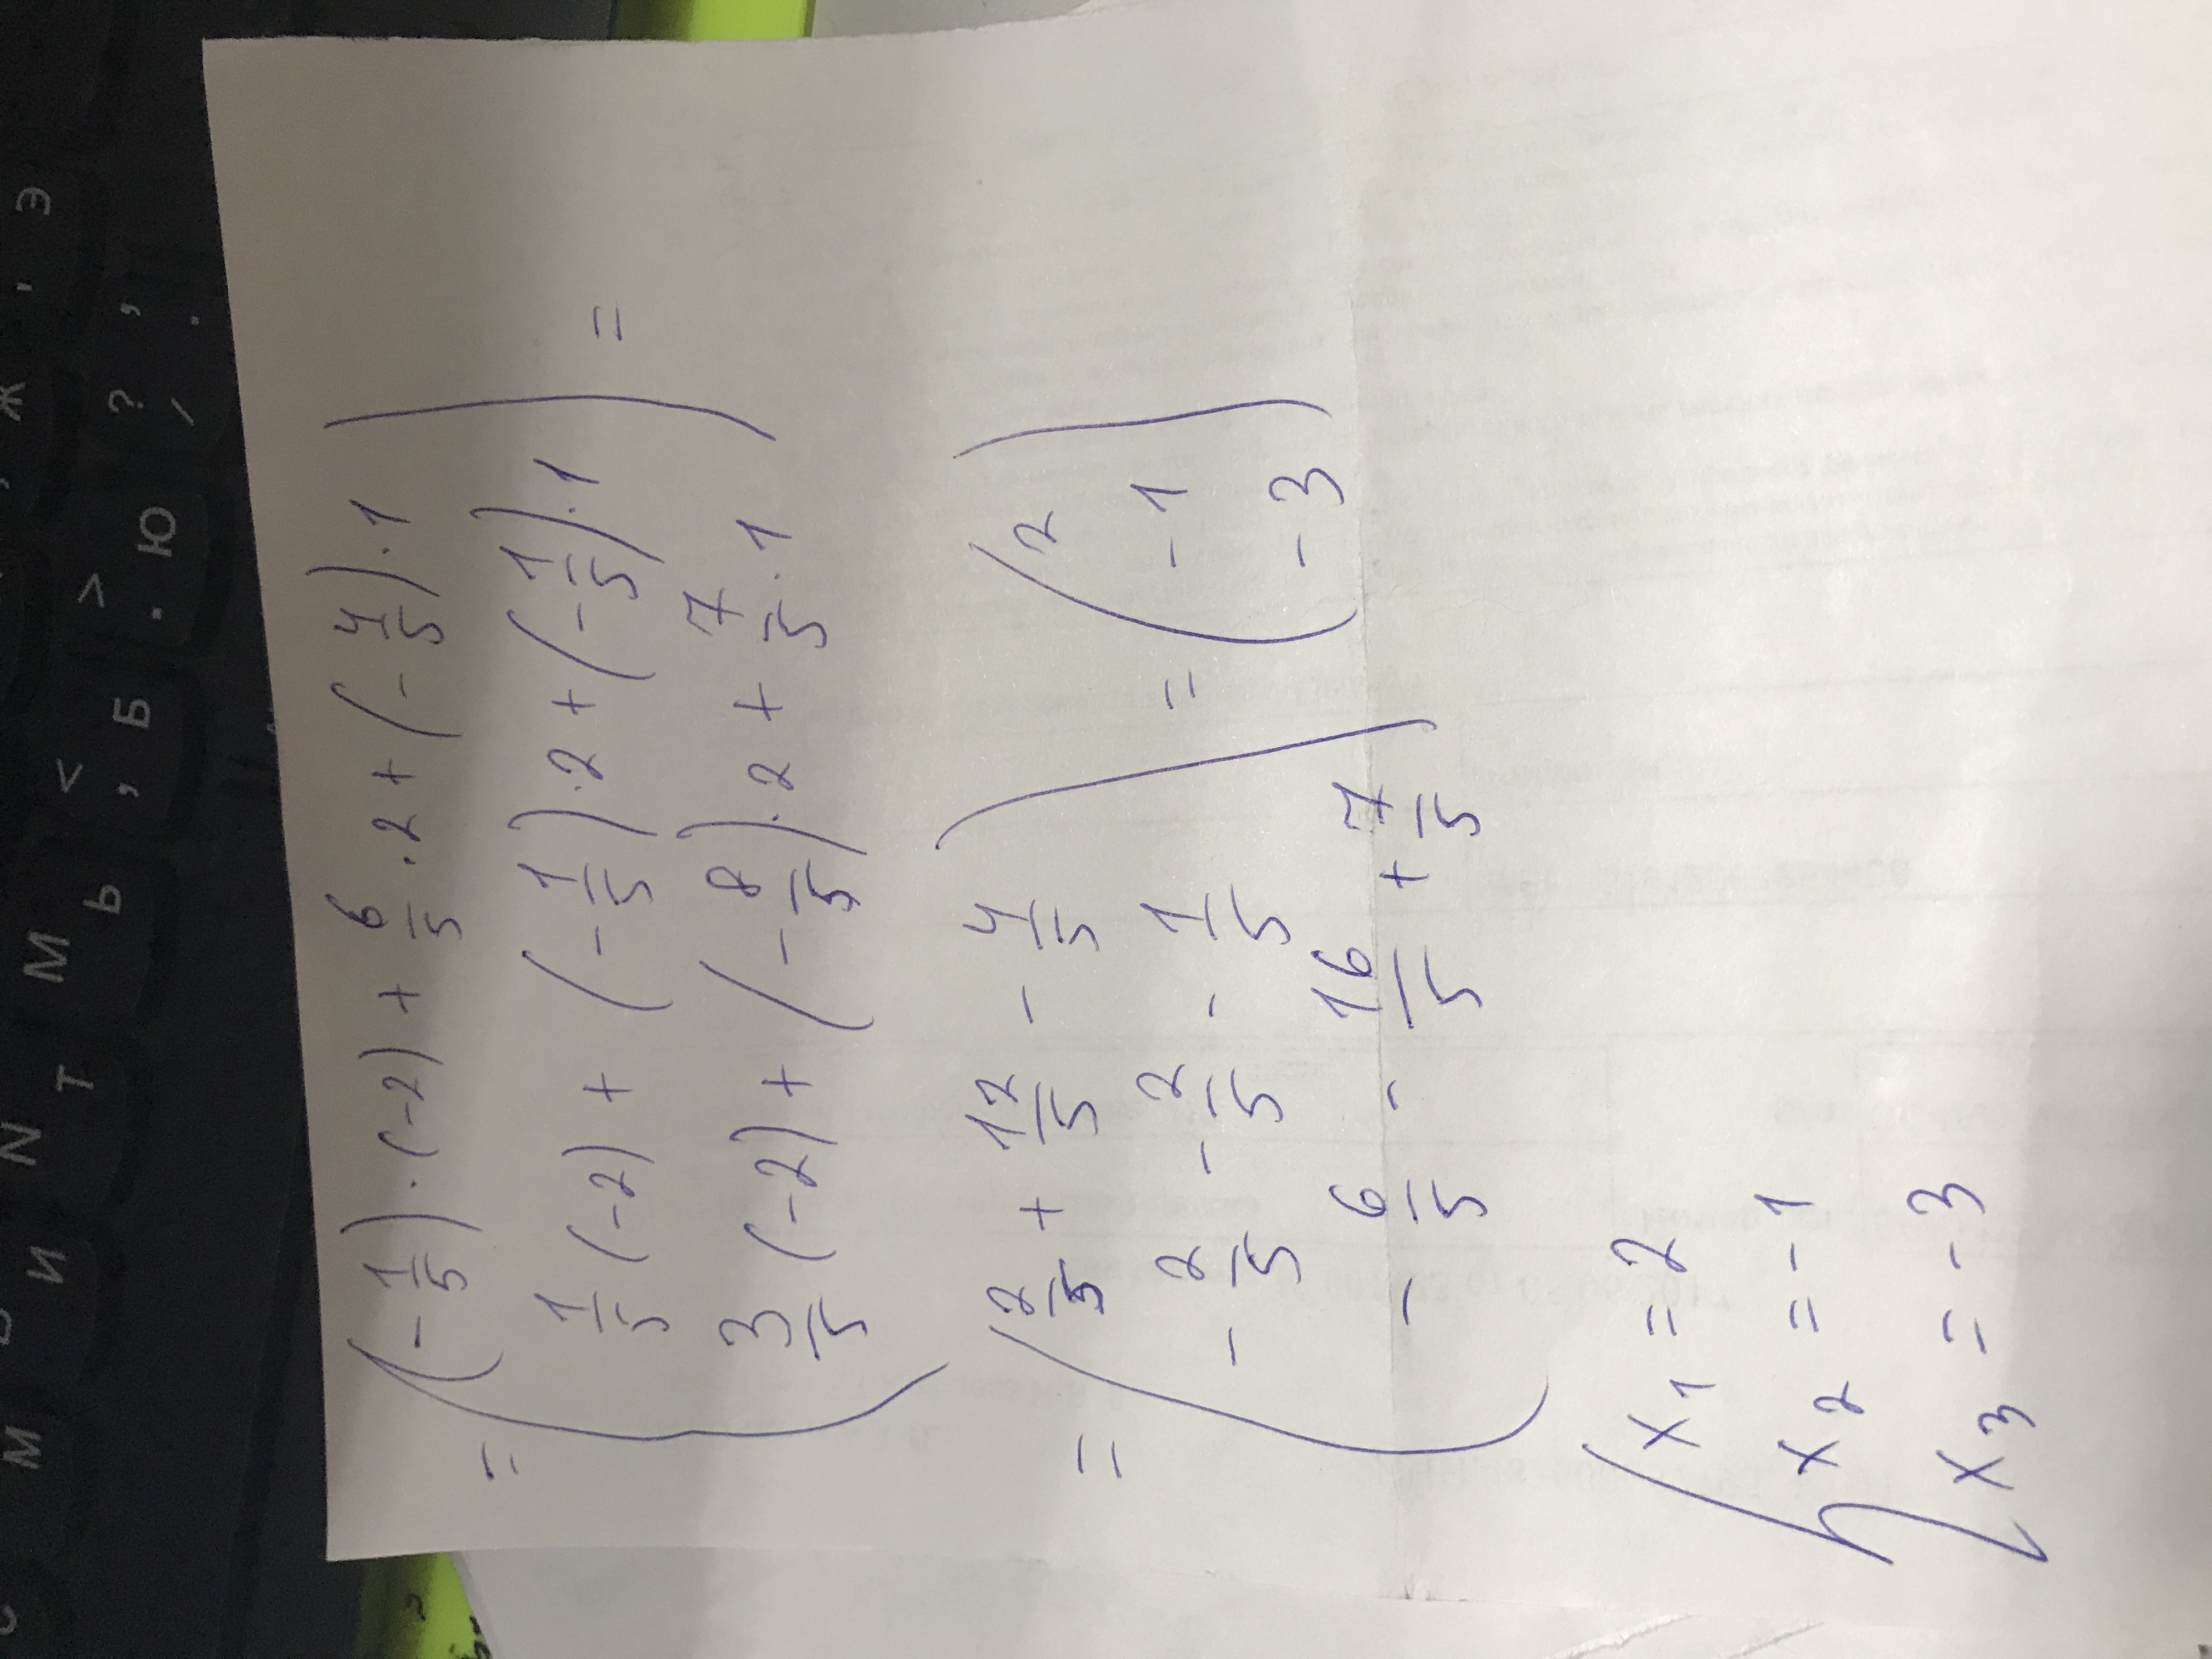 = ((-1/5)·(-2) + 6/5·2 + (-4/5)·1
1/5(-2) + (-1/5)·2 + (-1/5)·1
3/5(-2) + (-8/5)·2 + 7/5·1) =
= (2/5 + 12/5 - 4/5
-2/5 - 2/5 - 1/5
- 6/5 - 16/5 + 7/5) = (2
-1
-3)
{x1 = 2
x2 = -1
x3 = -3
Э
Ж ,
? ,
/ .
Ю .
> Б
< ,
M Ь
N Т
И
М
С